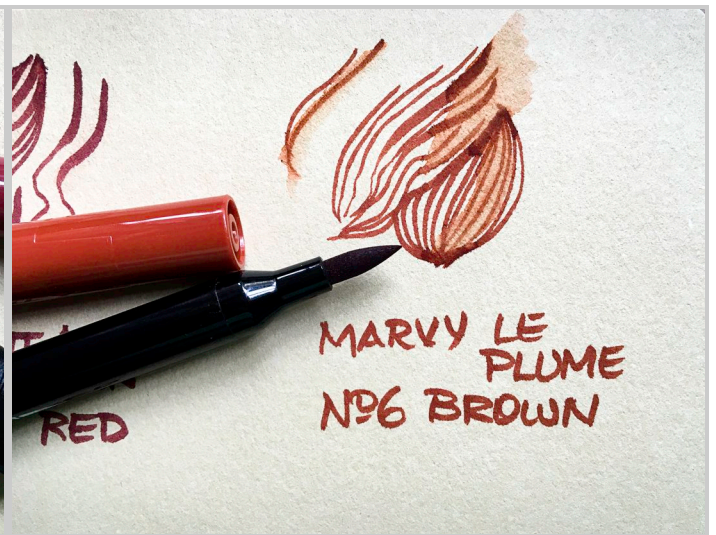 MARVY LE
PLUME
Nº6 BROWN
RED